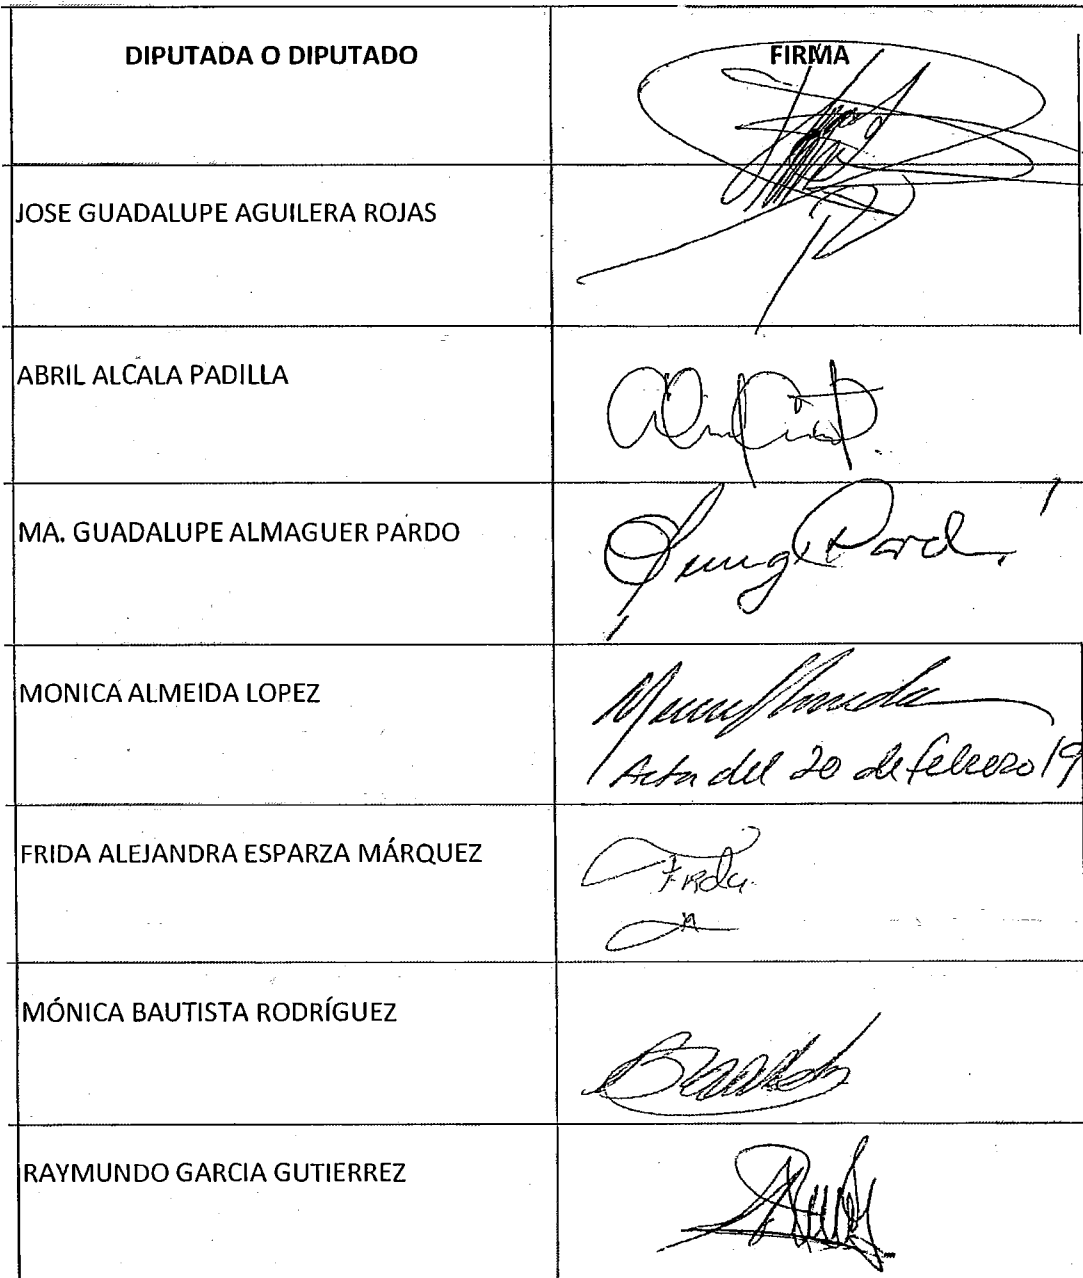 DIPUTADA O DIPUTADO
FIRMA
JOSE GUADALUPE AGUILERA ROJAS
ABRIL ALCALA PADILLA
MA. GUADALUPE ALMAGUER PARDO
Pard
MONICA ALMEIDA LOPEZ
Acta del 20 de febrero 19
FRIDA ALEJANDRA ESPARZA MÁRQUEZ
Frida
MÓNICA BAUTISTA RODRÍGUEZ
RAYMUNDO GARCIA GUTIERREZ